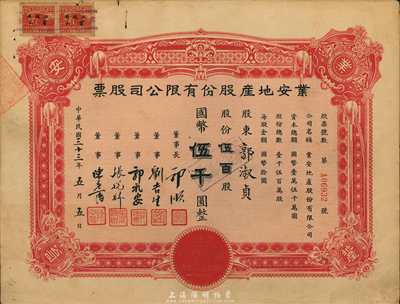 業安地產股份有限公司股票
股票號數 第 A06932 號
公司名稱 業安地產股份有限公司
資本總額 國幣壹萬伍千萬圓
股份總數 壹千伍百萬股
每股金額 國幣拾圓
股東 郭淑貞
股份 伍百股
國幣 伍千 圓整
董事長
董事
董事
董事
董事
中華民國三十三年五月五日
上海陽明拍賣